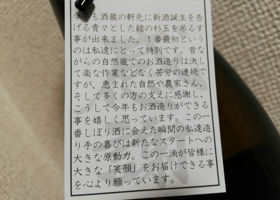 今年も酒蔵の軒先に新酒誕生を告
げる青々とした緑の杉玉を吊るす
事が出来ました。1番最初という
のは私達にとって特別です。昔な
がらの自然蔵でのお酒造りは決し
て楽な作業などなく苦労の連続で
すが、恵まれた自然や農家さん、
そして多くの方の支えに感謝し、
こうして今年もお酒造りができる
事を嬉しく思っています。この一
番しぼり酒に会えた瞬間の私達造
り手の喜びは新たなスタートへの
大きな原動力。この一滴が皆様に
大きな「笑顔」をお届けできる事
を心より願っています。